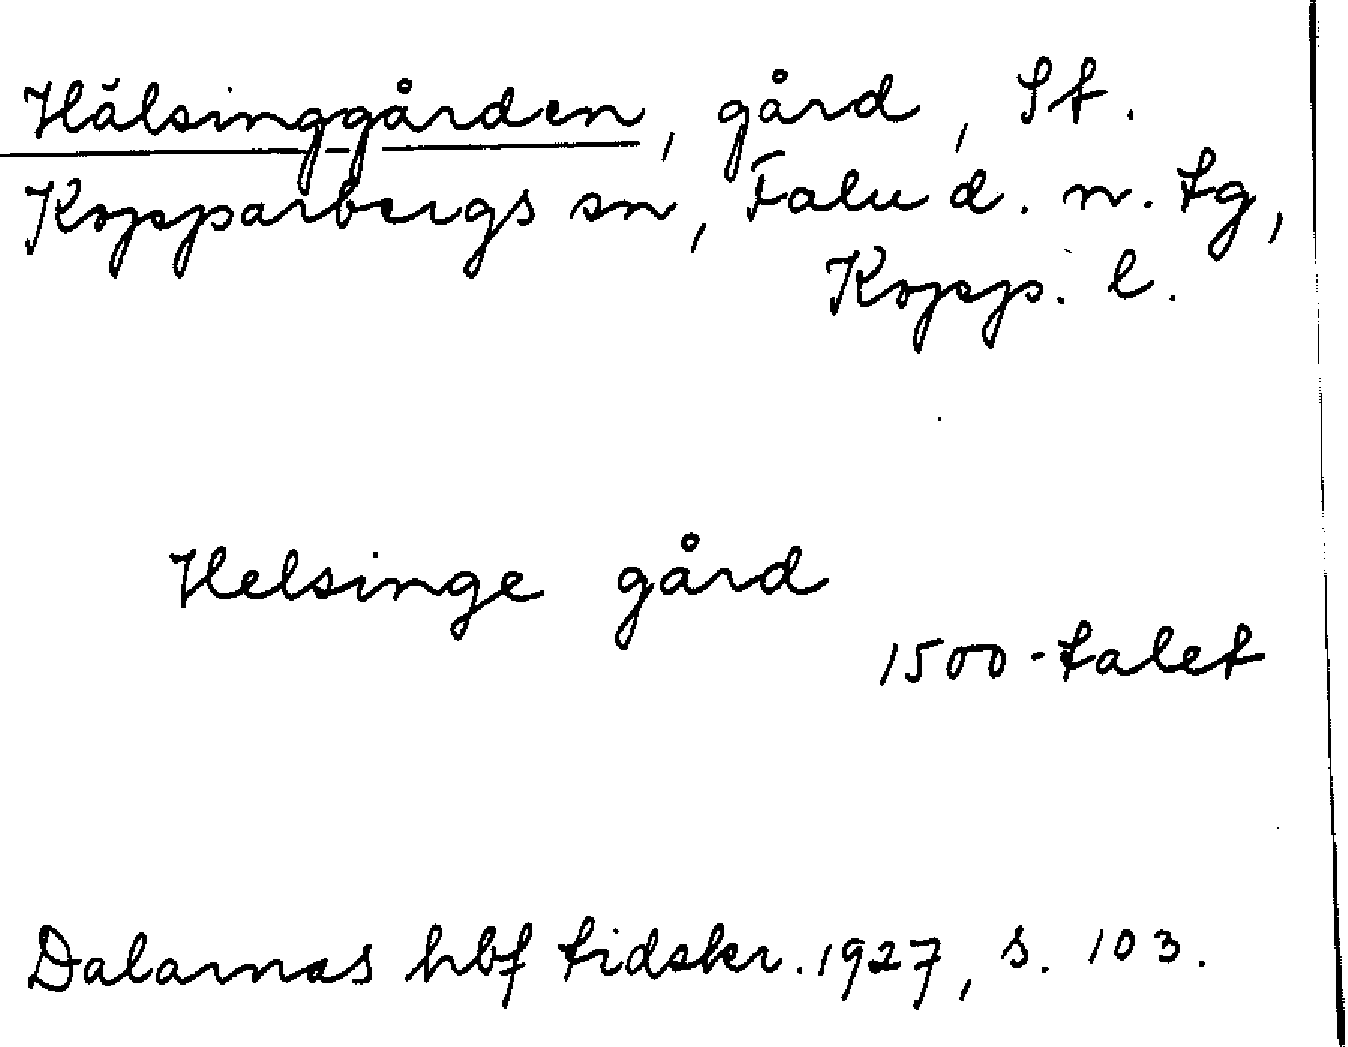 Hälsinggården, gård, St.
Kopparbergs sn, Falu d. n. tg,
Kopp. l.
Helsinge gård
1500-talet
Dalarnas hbf tidskr. 1927, s. 103.